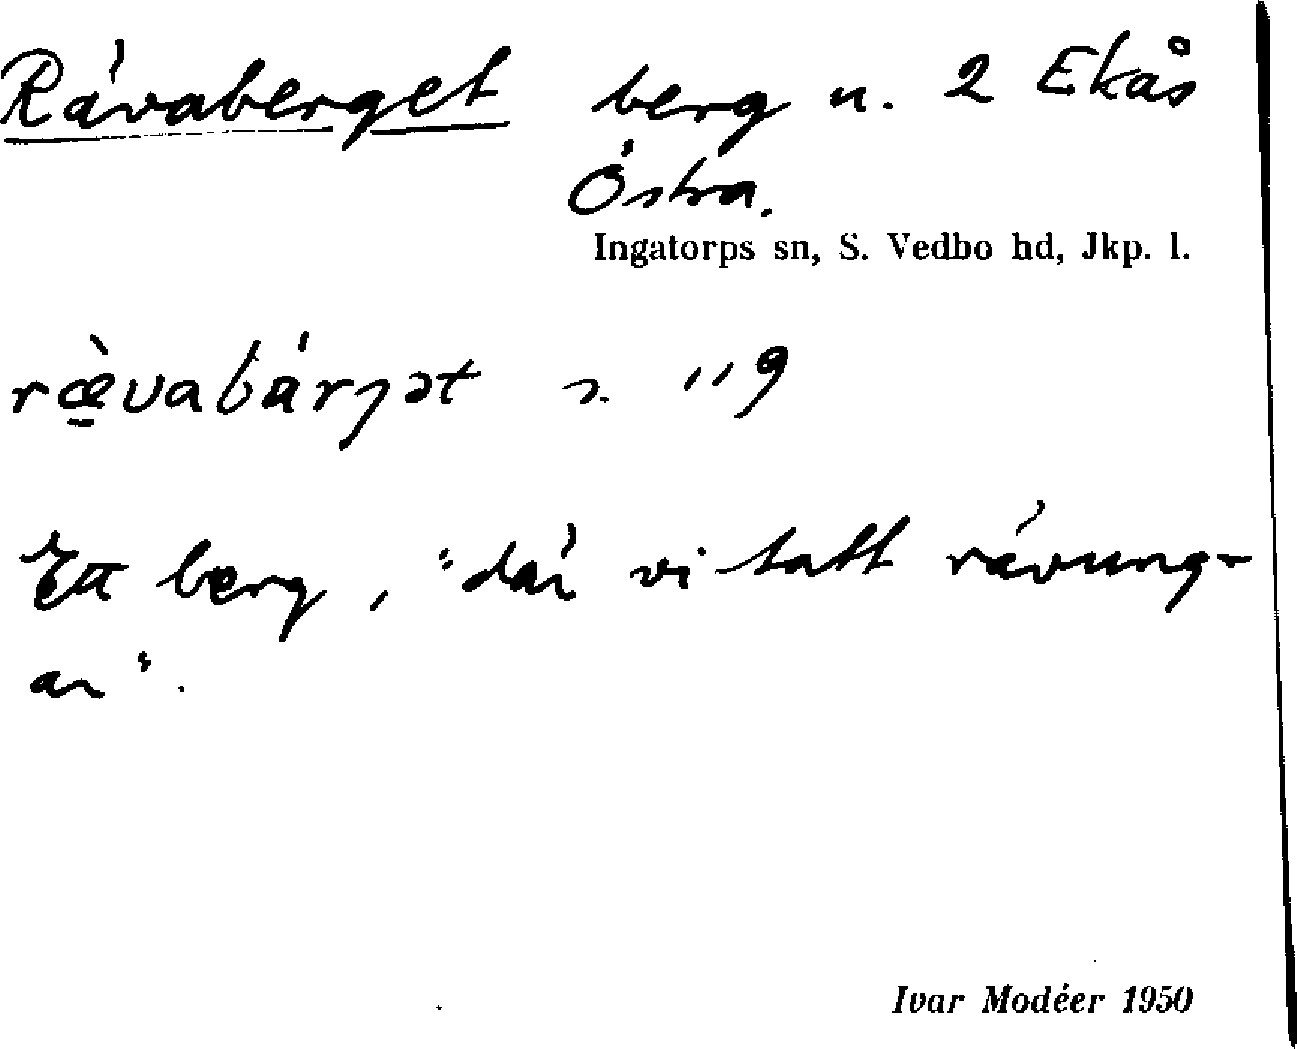 Rävaberget berg u. 2 Ekås
Östra.
Ingatorps sn, S. Vedbo hd, Jkp. l.
ræ̀vabárjət s. ''9
Ett berg, "där vi tatt rävung-
ar".
Ivar Modéer 1950